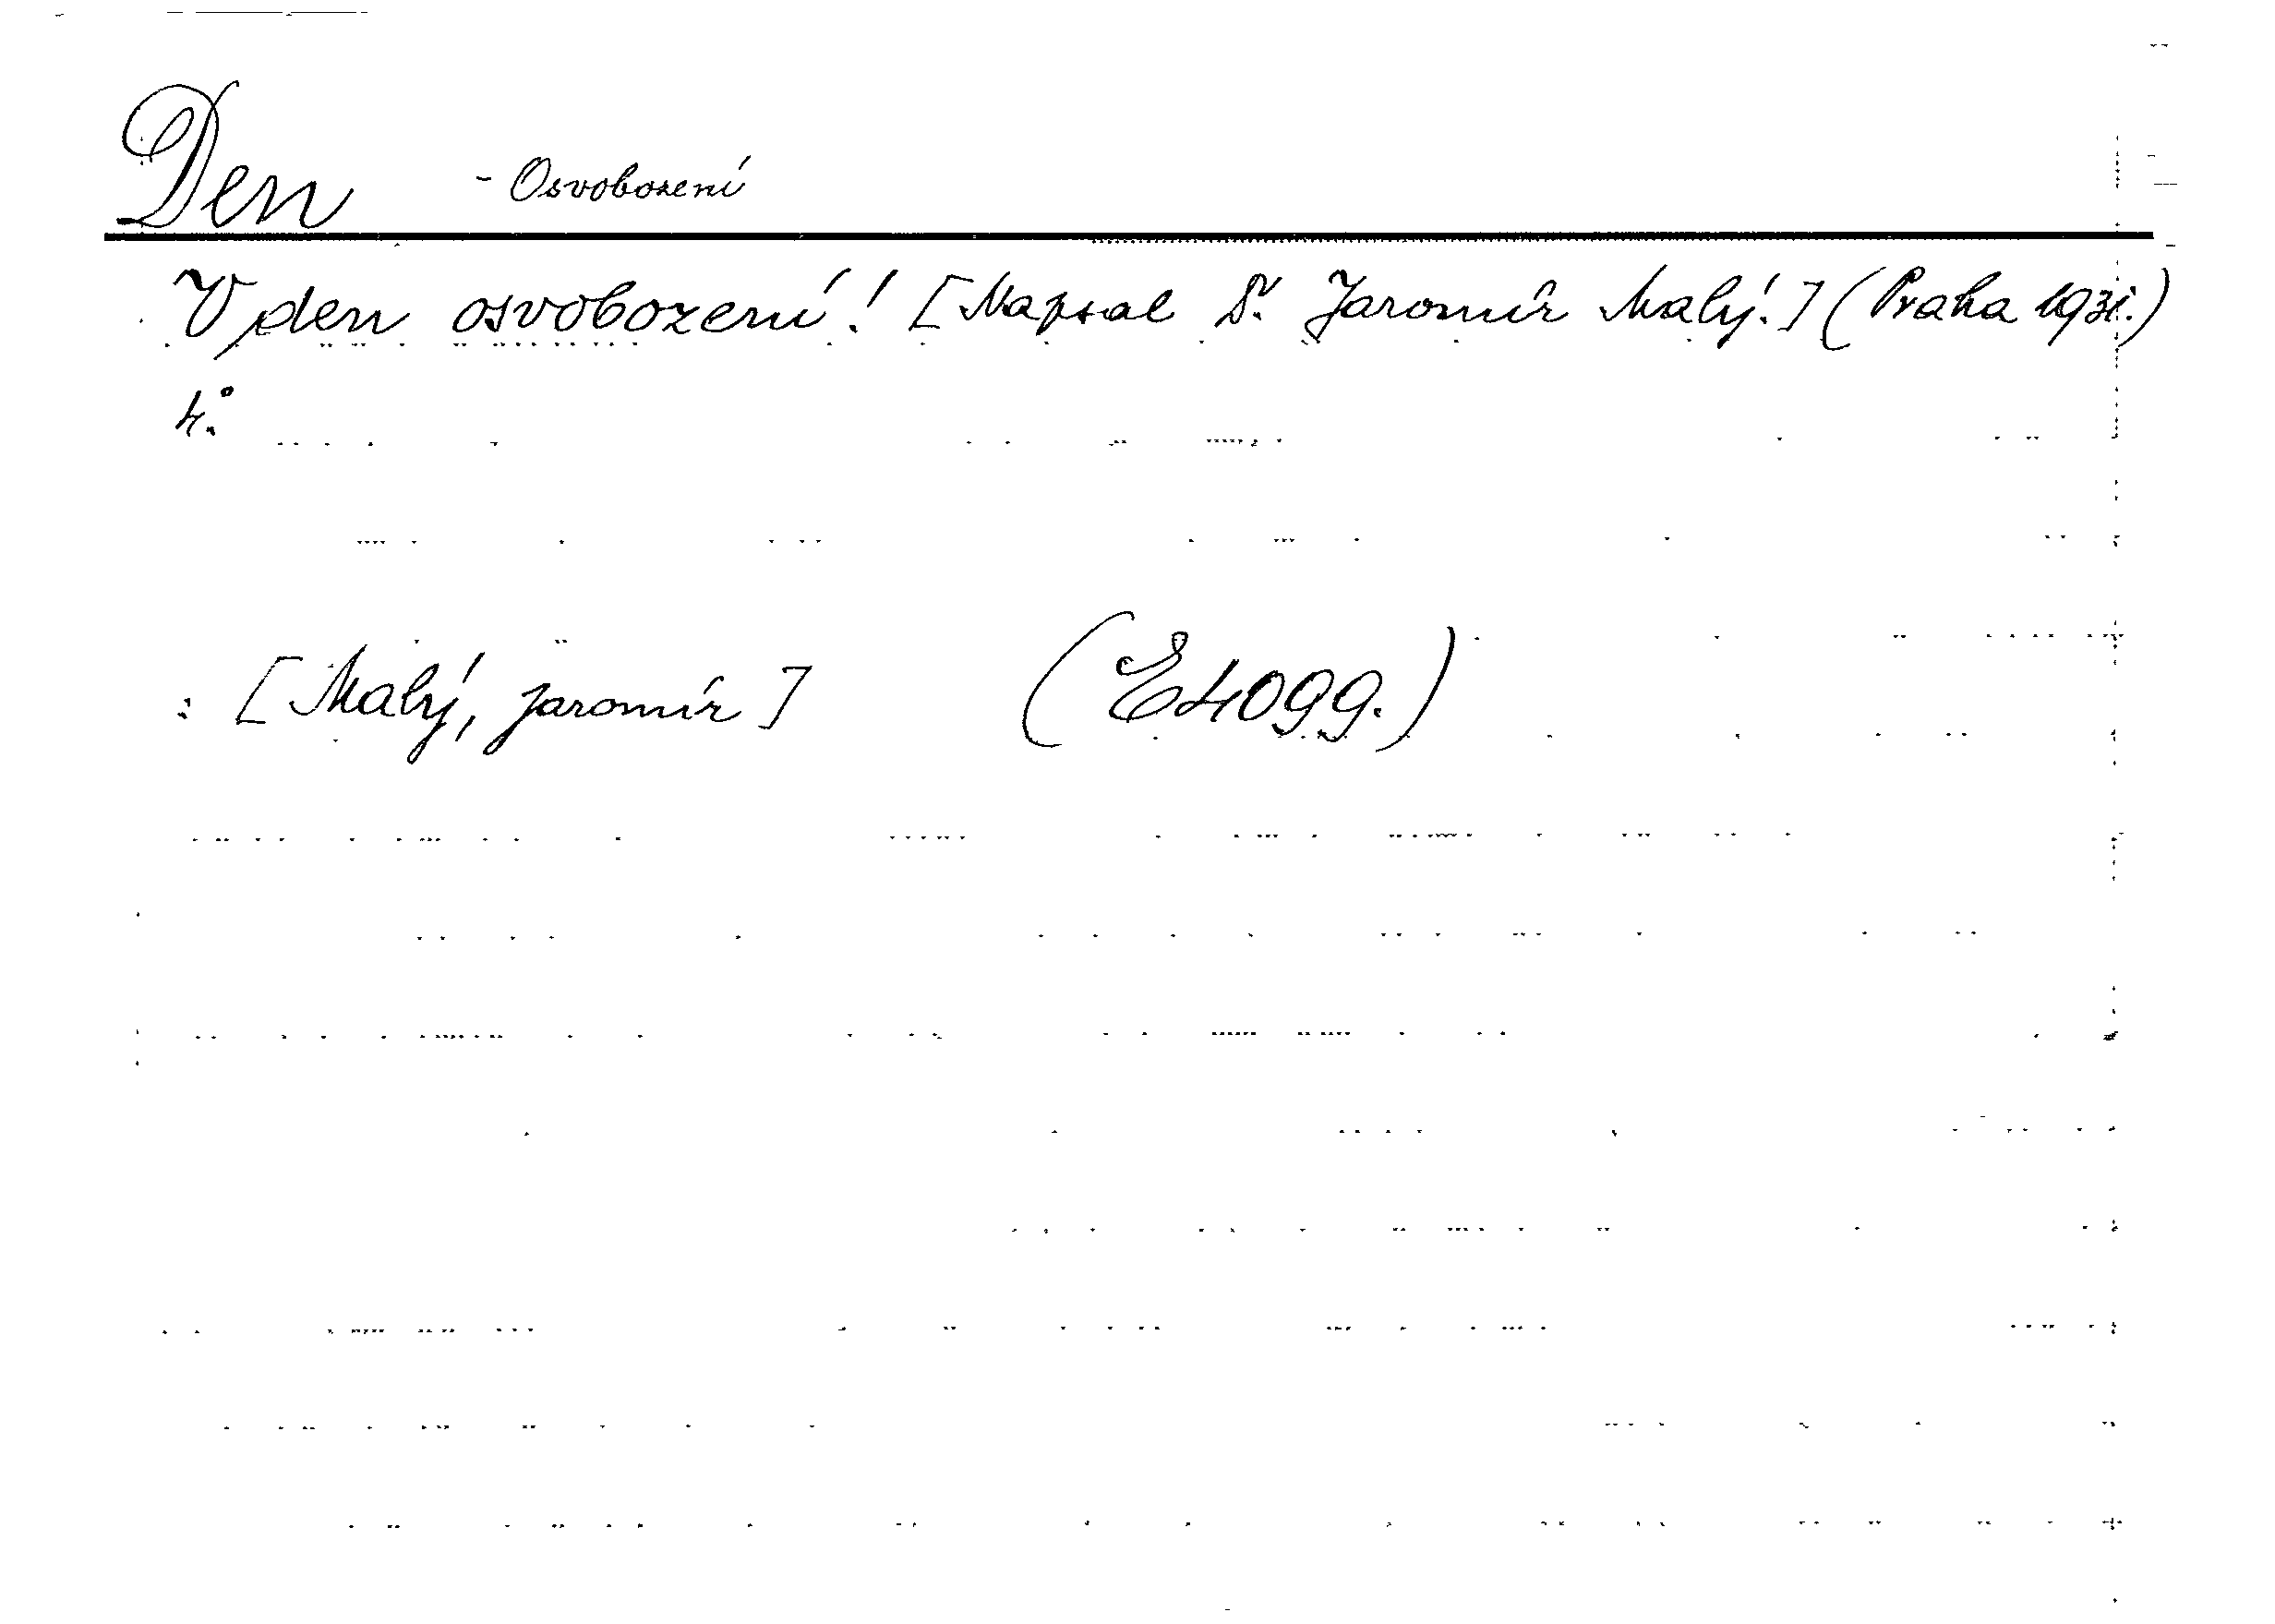 Den - Osvobození
V den osvobození! [Napsal Dr. Jaromír Malý.] (Praha 1931.)
4°.
: [Malý, Jaromír] (E4099.)